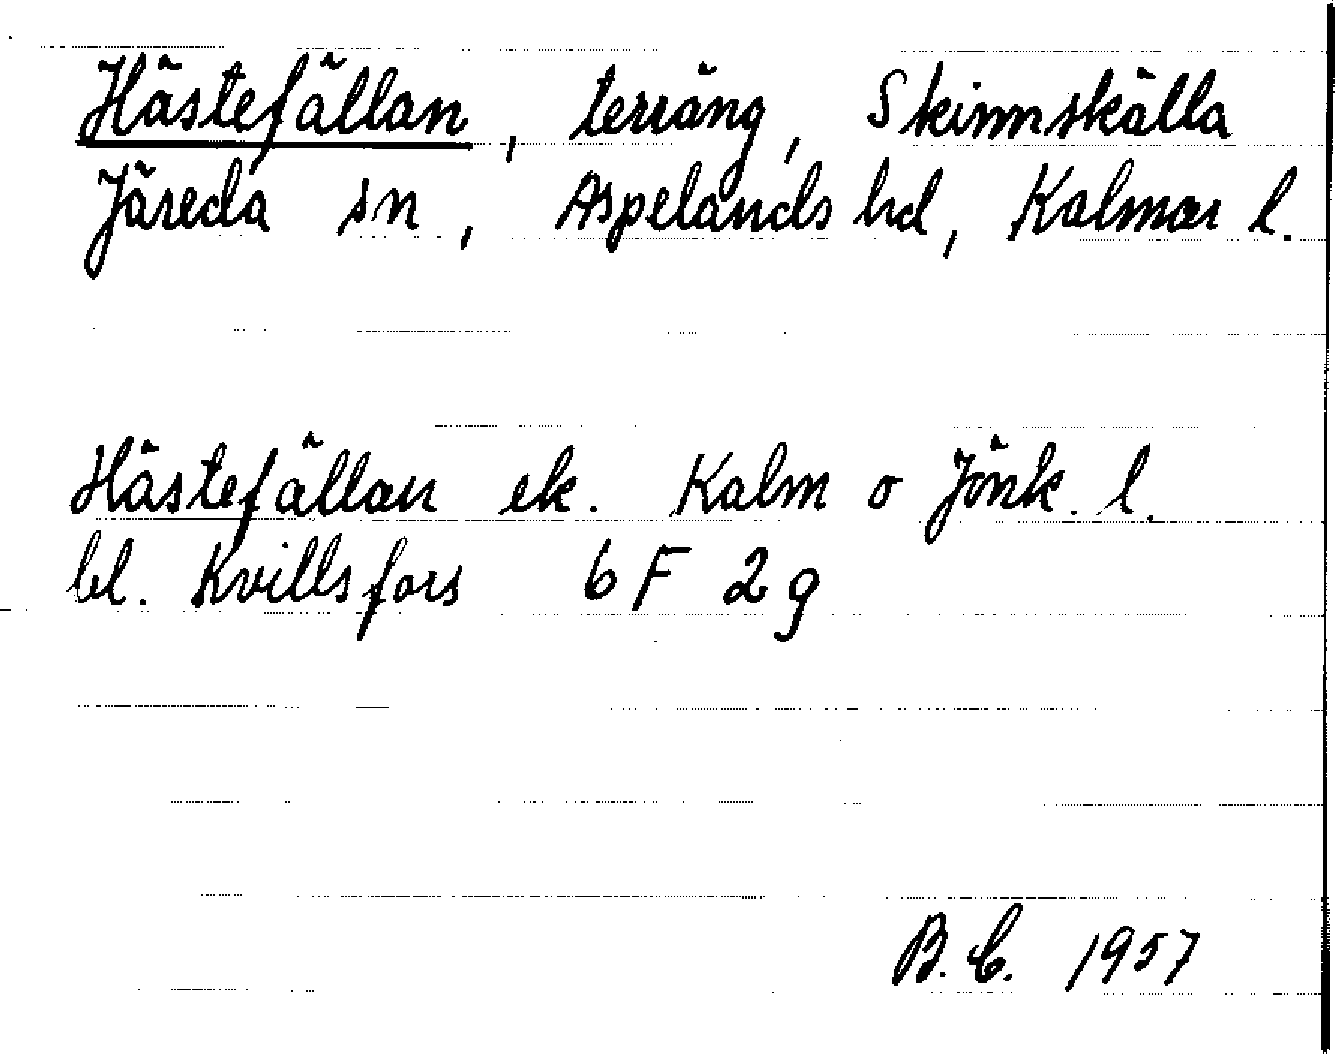 Hästefällan, terräng, Skinnskälla
Järeda sn, Aspelands hd, Kalmar l.
Hästefällan ek. Kalm o Jönk. l.
bl. Kvillsfors 6 F 2 g
B. C. 1957